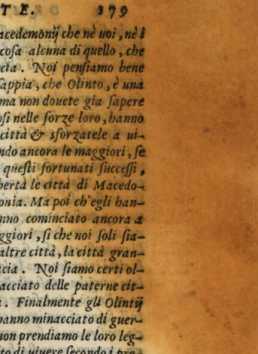 TE. 179
acedemonij che nè uoi, nè i
cosa alcuna di quello, che
cia. Noi pensiamo bene
sappia, che Olinto, è una
ma non douete gia sapere
osi nelle forze loro, hanno
città & sforzatele a ui-
ndo ancora le maggiori, se
questi fortunati successi,
bertà le città di Macedo-
onia. Ma poi ch'egli han-
nno cominciato ancora a
ggiori, si che noi soli sia-
altre città, la città gran-
cia. Noi siamo certi ol-
acciato delle paterne cit-
. Finalmente gli Olintij
hanno minacciato di guer-
non prendiamo le loro leg-
to di uiuere secondo i